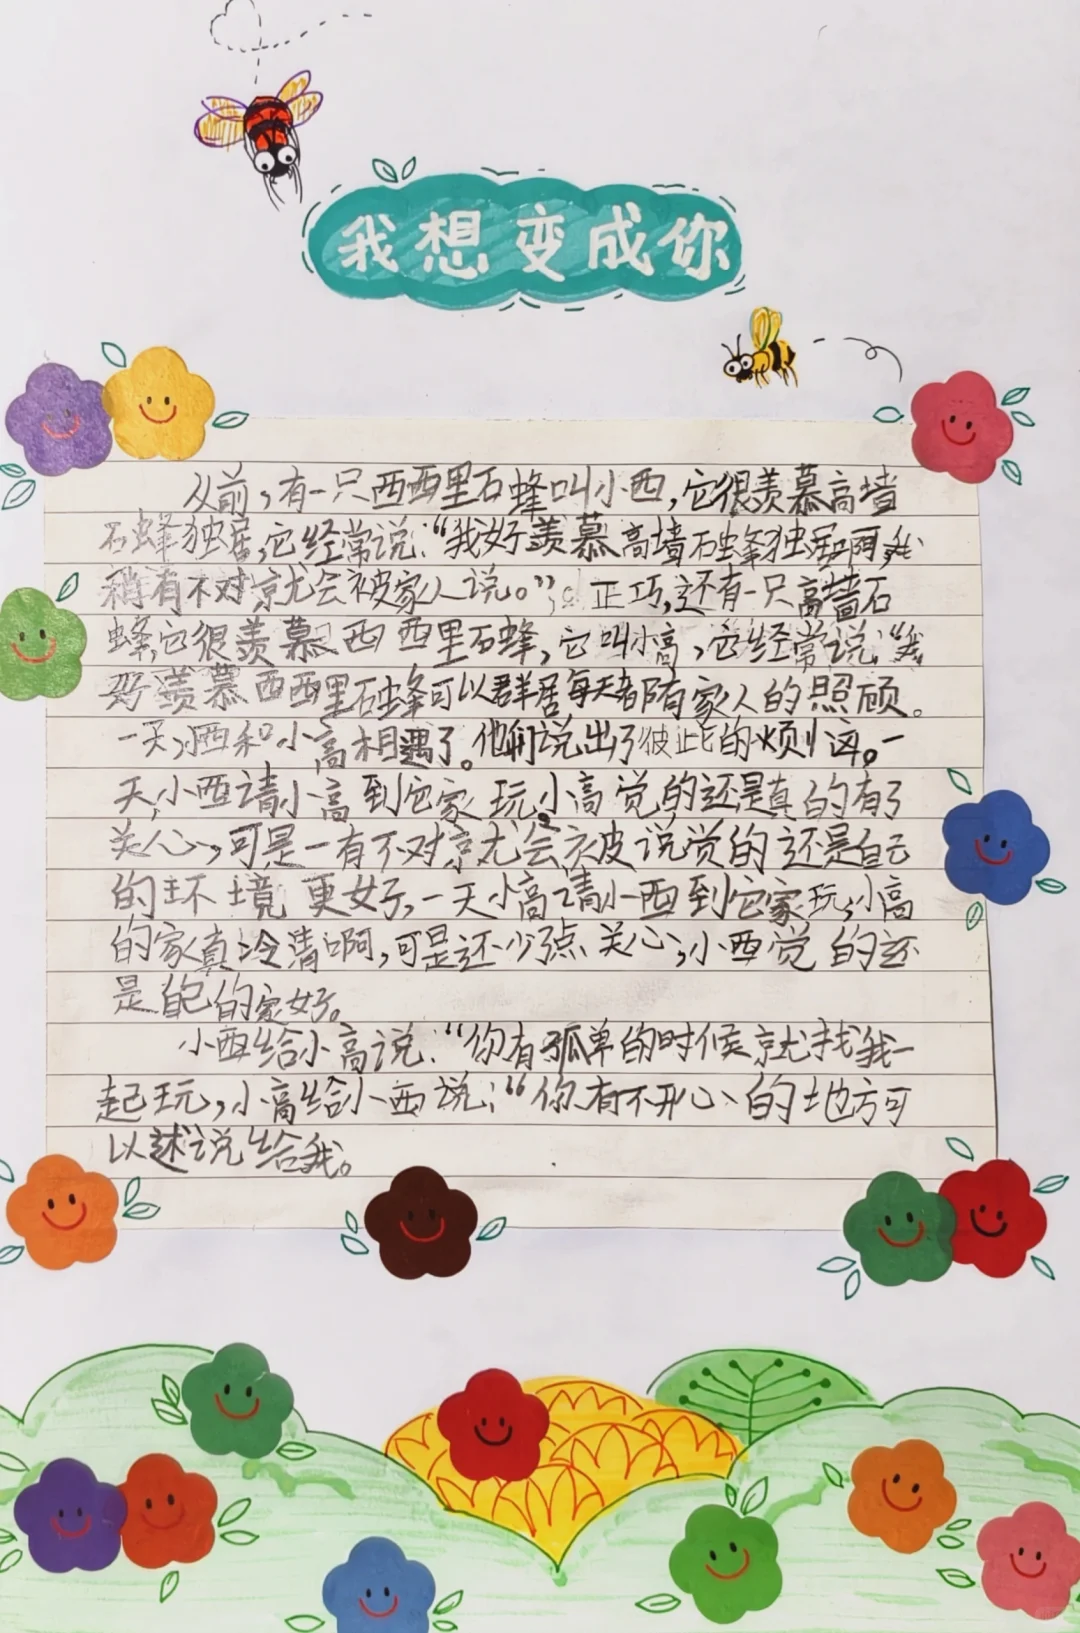 我想变成你
从前,有一只西西里石蜂叫小西,它很羡慕高墙
石蜂独居,它经常说:“我好羡慕高墙石蜂独居啊,我
稍有不对就会被家人说。”正巧,还有一只高墙石
蜂,它很羡慕西西里石蜂,它叫小高,它经常说:“我
好羡慕西西里石蜂可以群居每天都有家人的照顾。
一天,小西和小高相遇了。他们说出了彼此的烦恼。一
天,小西请小高到它家玩,小高觉的还是真的有了
关心,可是一有不对就会被说觉的还是自己
的环境更好,一天小高请小西到它家玩,小高
的家真冷清啊,可是还少点关心,小西觉的还
是自己的家好。
小西给小高说:“你有孤单的时候就找我一
起玩,小高给小西说:“你有不开心的地方可
以述说给我。